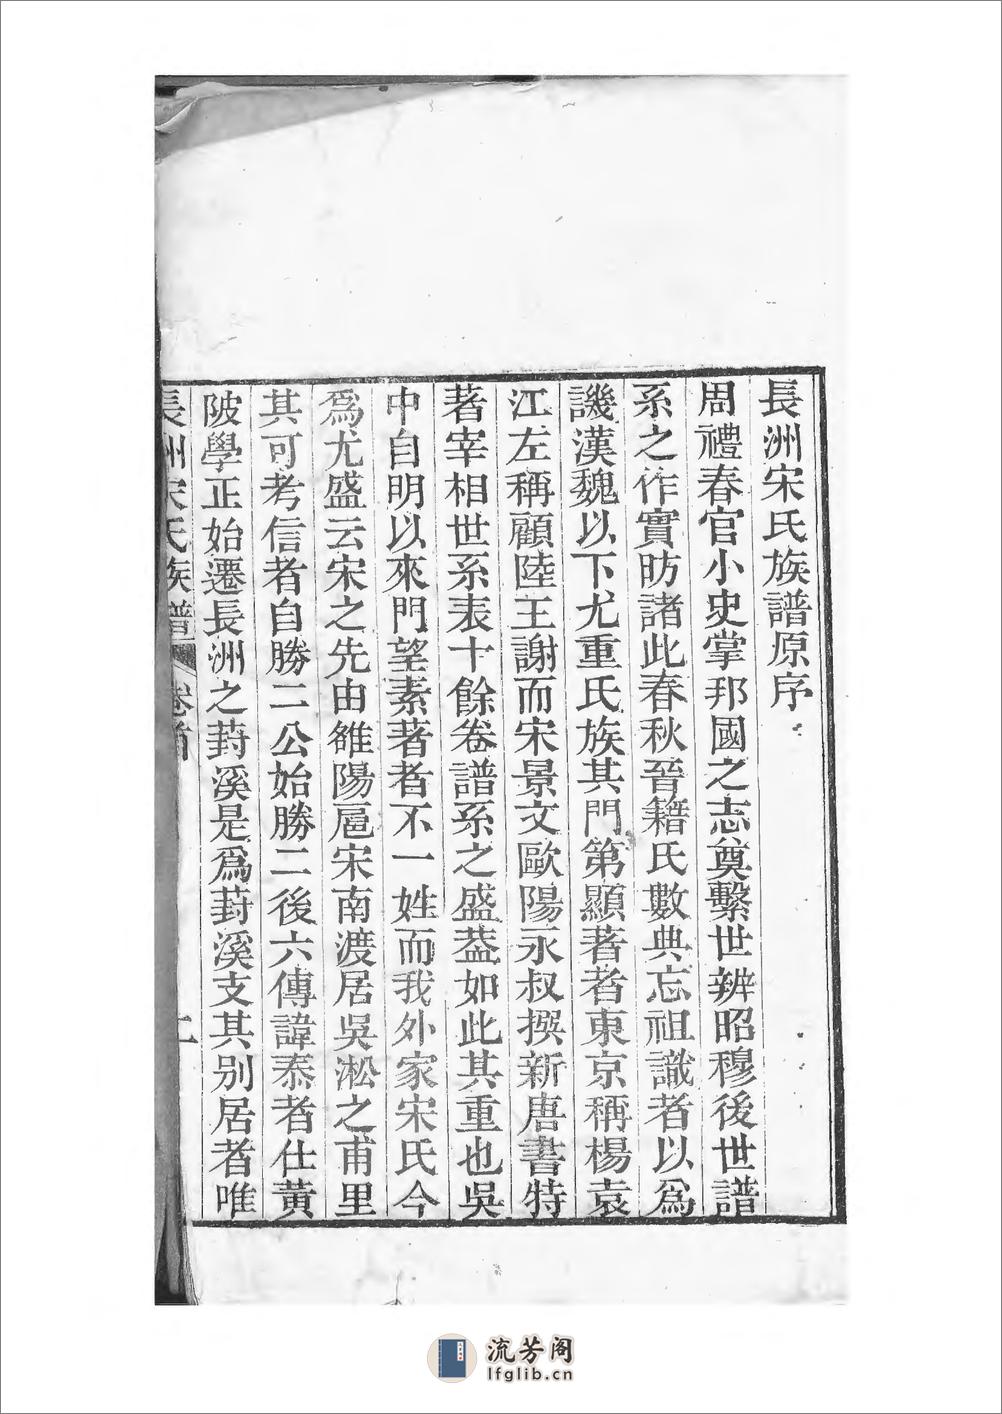 長洲宋氏族譜原序
周禮春官小史掌邦國之志奠繫世辨昭穆後世譜
系之作實昉諸此春秋晉籍氏數典忘祖識者以爲
譏漢魏以下尤重氏族其門第顯著者東京稱楊袁
江左稱顧陸王謝而宋景文歐陽永叔撰新唐書特
著宰相世系表十餘卷譜系之盛葢如此其重也吳
中自明以來門望素著者不一姓而我外家宋氏今
爲尤盛云宋之先由雒陽扈宋南渡居吳淞之甫里
其可考信者自勝二公始勝二後六傳諱泰者仕黃
陂學正始遷長洲之葑溪是爲葑溪支其別居者唯
長洲宋氏族譜 卷首 一
流芳阁
lfglib.cn